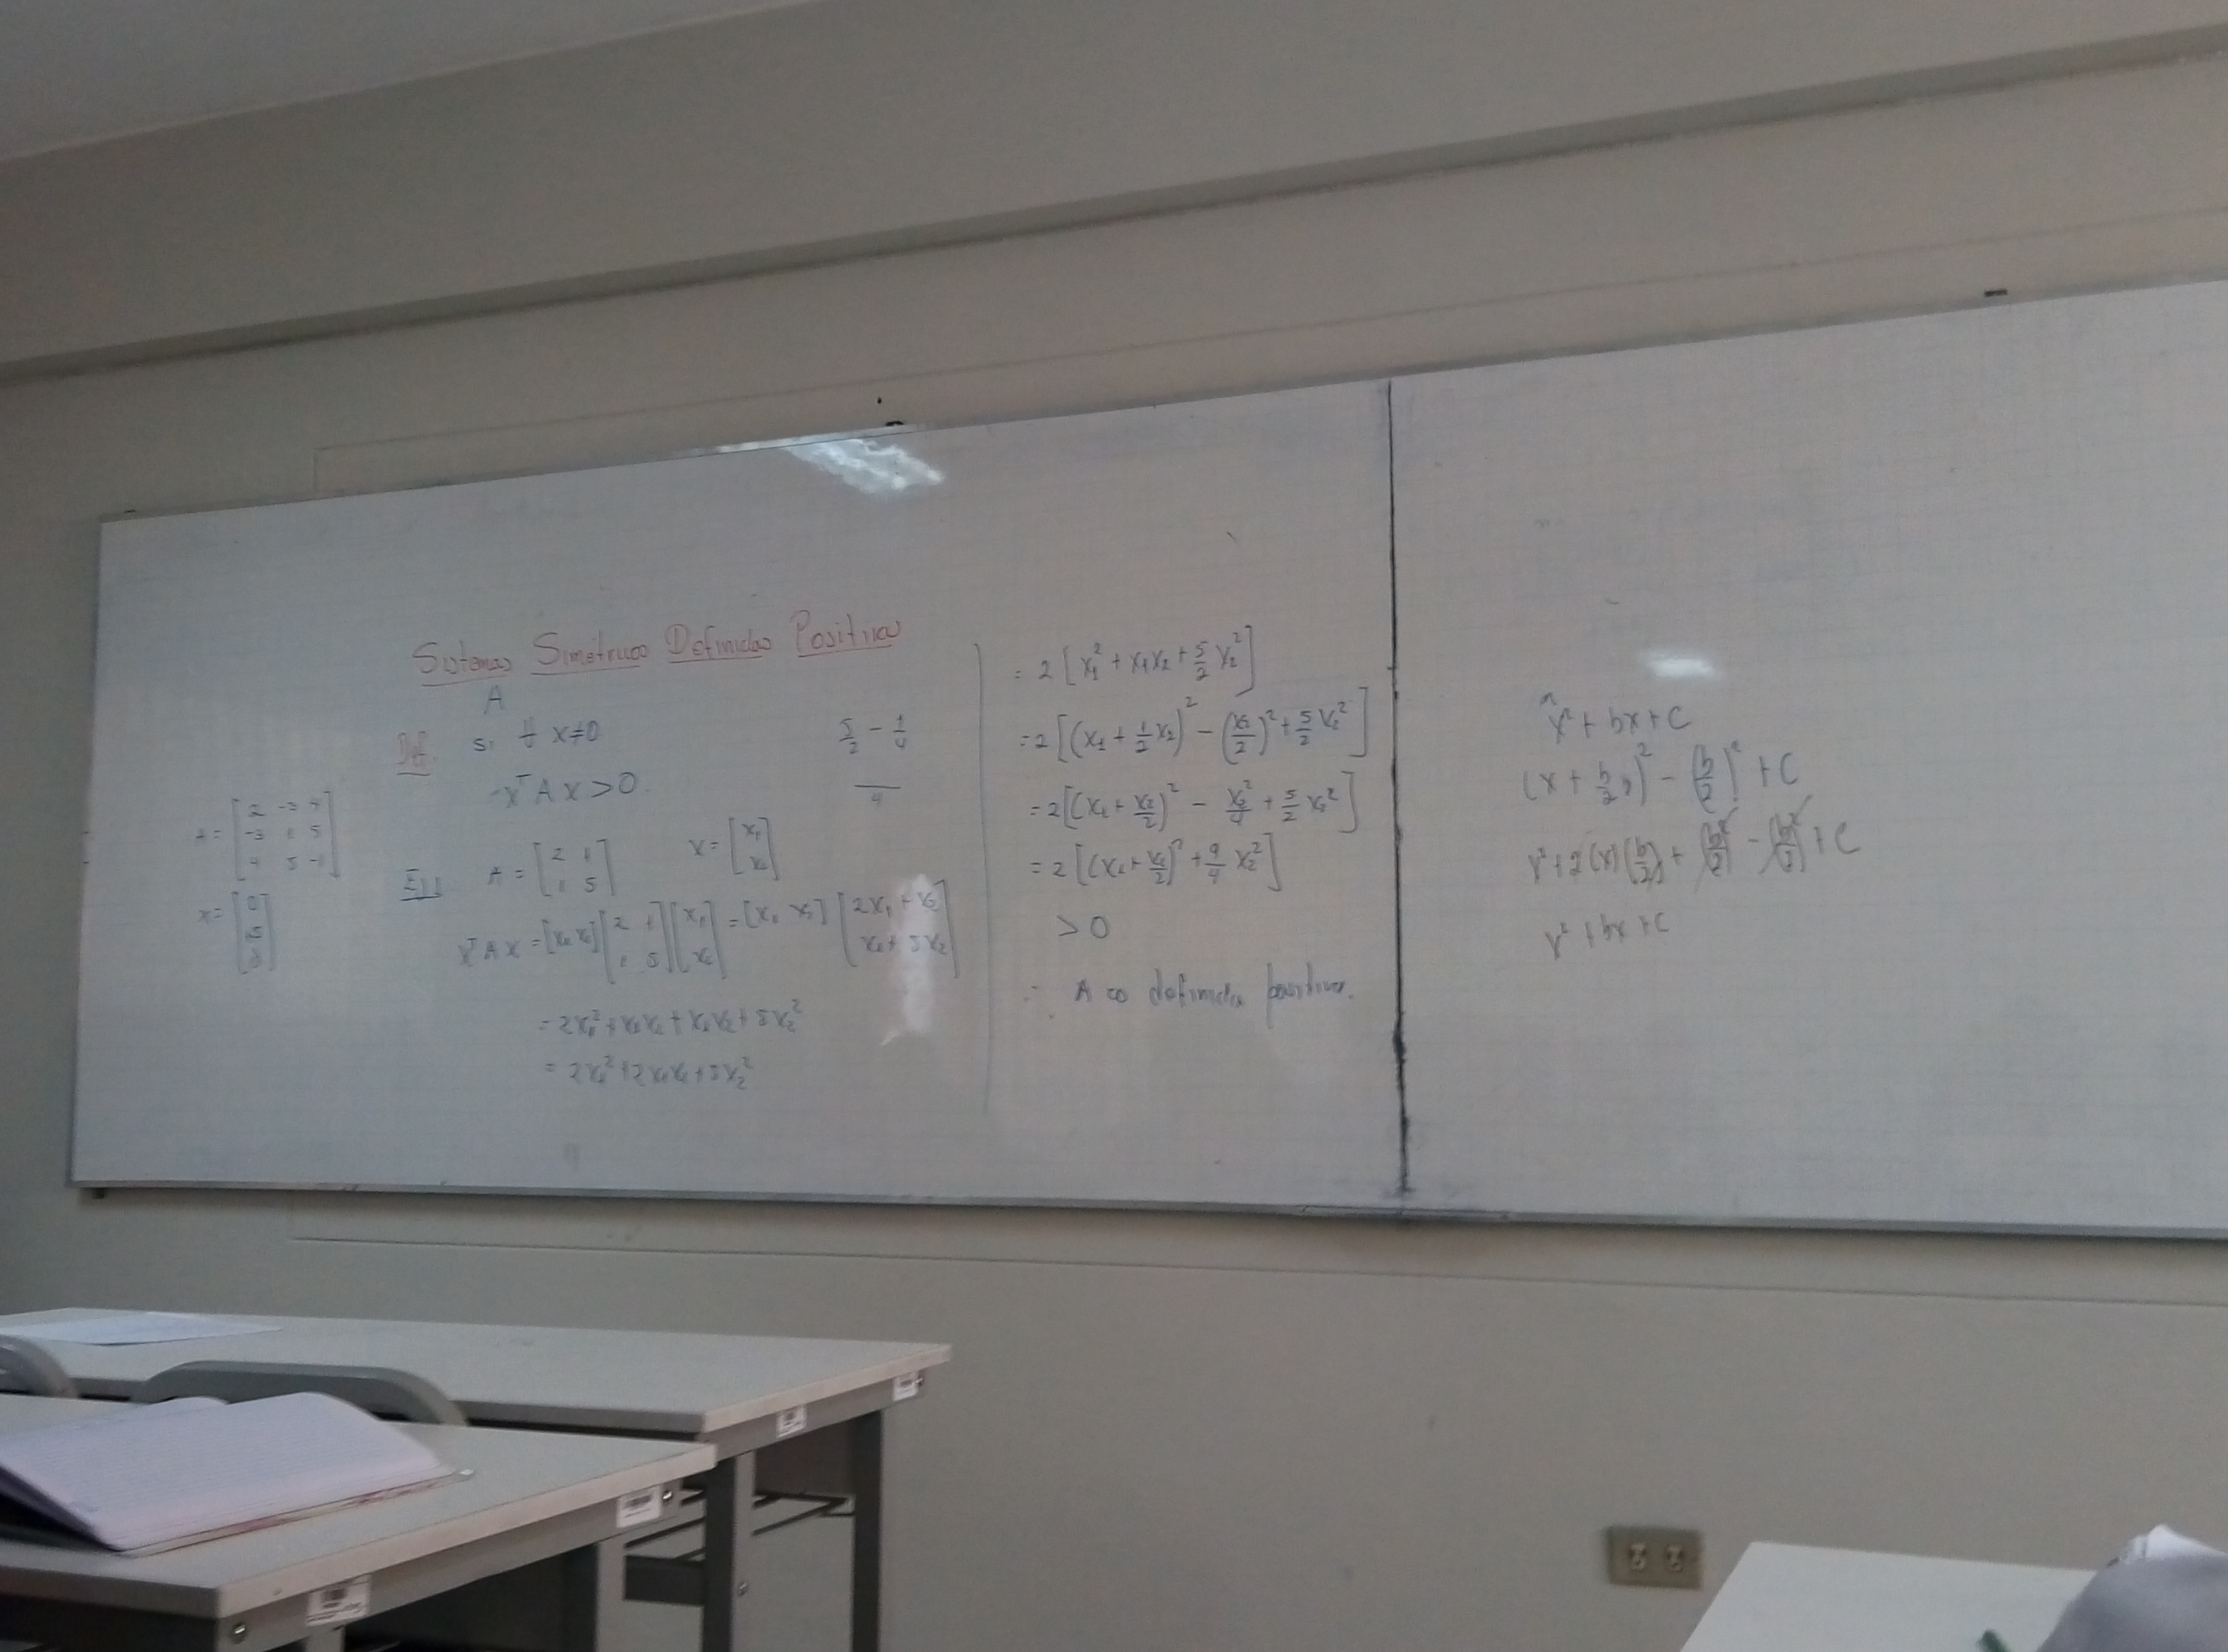 Sistemas Simétricos Definidos Positivos
A
Def. si ∀ x≠0
xᵀAx > 0
5/2 - 1/4
4
A = [2 -3 4; -3 1 5; 4 5 -1]
x =
Ej1 A = [2 1; 1 5] x = [x₁; x₂]
xᵀAx = [x₁ x₂][2 1; 1 5][x₁; x₂] = [x₁ x₂][2x₁ + x₂; x₁ + 5x₂]
= 2x₁² + x₁x₂ + x₁x₂ + 5x₂²
= 2x₁² + 2x₁x₂ + 5x₂²
= 2[x₁² + x₁x₂ + 5/2 x₂²]
= 2[(x₁ + 1/2 x₂)² - (x₂/2)² + 5/2 x₂²]
= 2[(x₁ + x₂/2)² - x₂²/4 + 5/2 x₂²]
= 2[(x₁ + x₂/2)² + 9/4 x₂²]
> 0
∴ A es definida positiva.
x² + bx + c
(x + b/2)² - (b/2)² + c
x² + 2(x)(b/2) + (b/2)² - (b/2)² + c
x² + bx + c